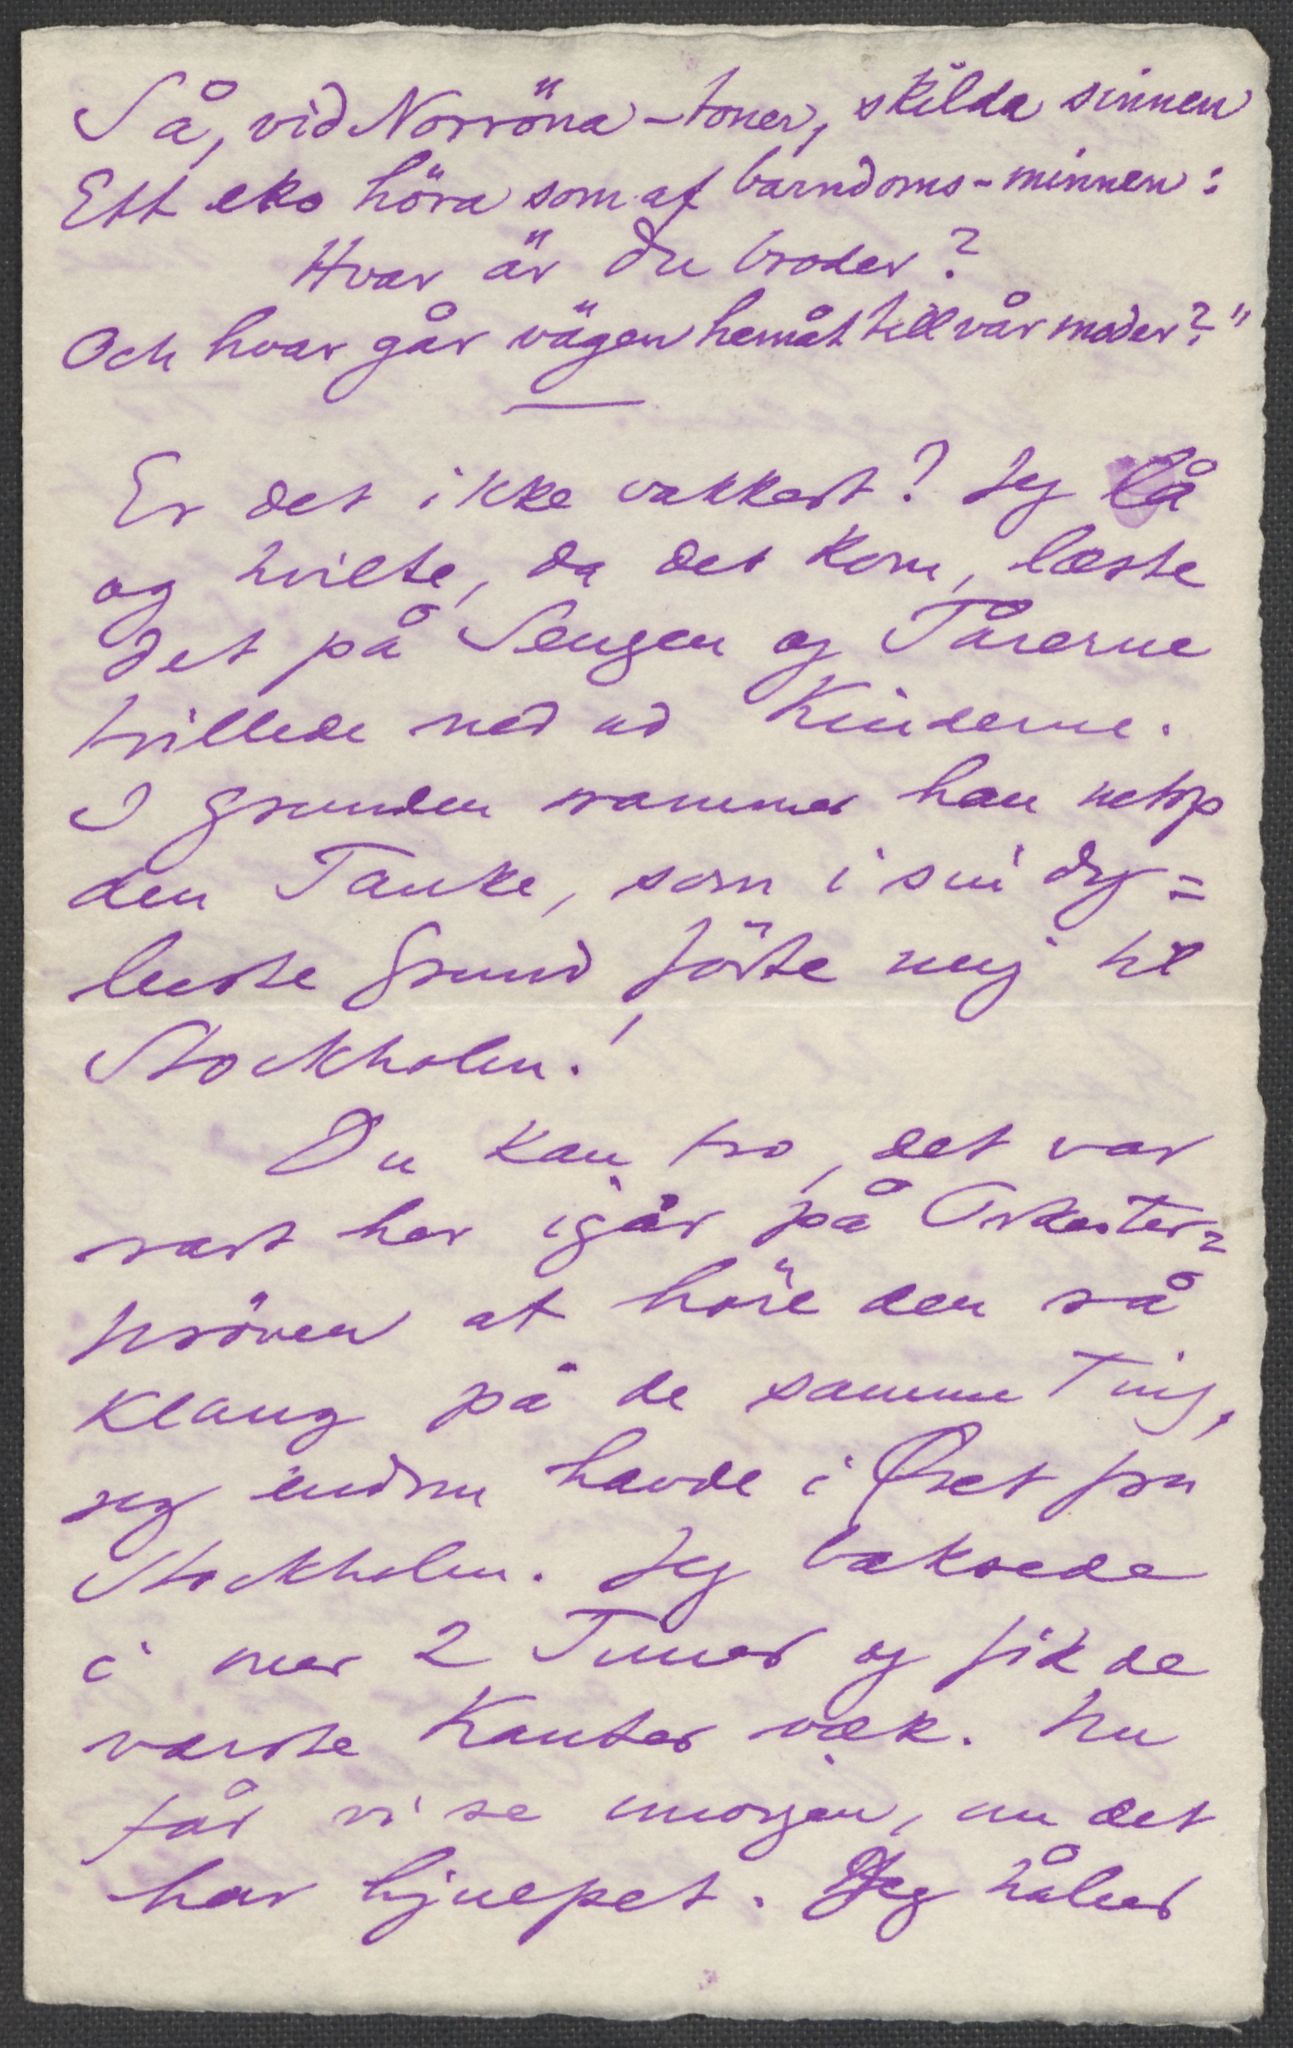 Så, vid Norröna-toner, skilda sinnen
Ett eko höra som af barndoms-minnen:
Hvar är du broder?
Och hvar går vägen hemåt till vår moder?"
Er det ikke vakkert? Jeg lå
og hvilte, da det kom, læste
det på Sengen og Tårerne
trillede ned ad Kinderne.
I Grunden rammer han netop
den Tanke, som i sin dy=
beste Grund förte mig til
Stockholm!
Du kan tro, det var
rart her igår på Orkester=
pröven at höre den rå
Klang på de samme Ting,
jeg endnu havde i Øret fra
Stockholm. Jeg baksede
i mer 2 Timer og fik de
værste Kanter væk. Nu
får vi se imorgen, om det
har hjulpet. Jeg håber